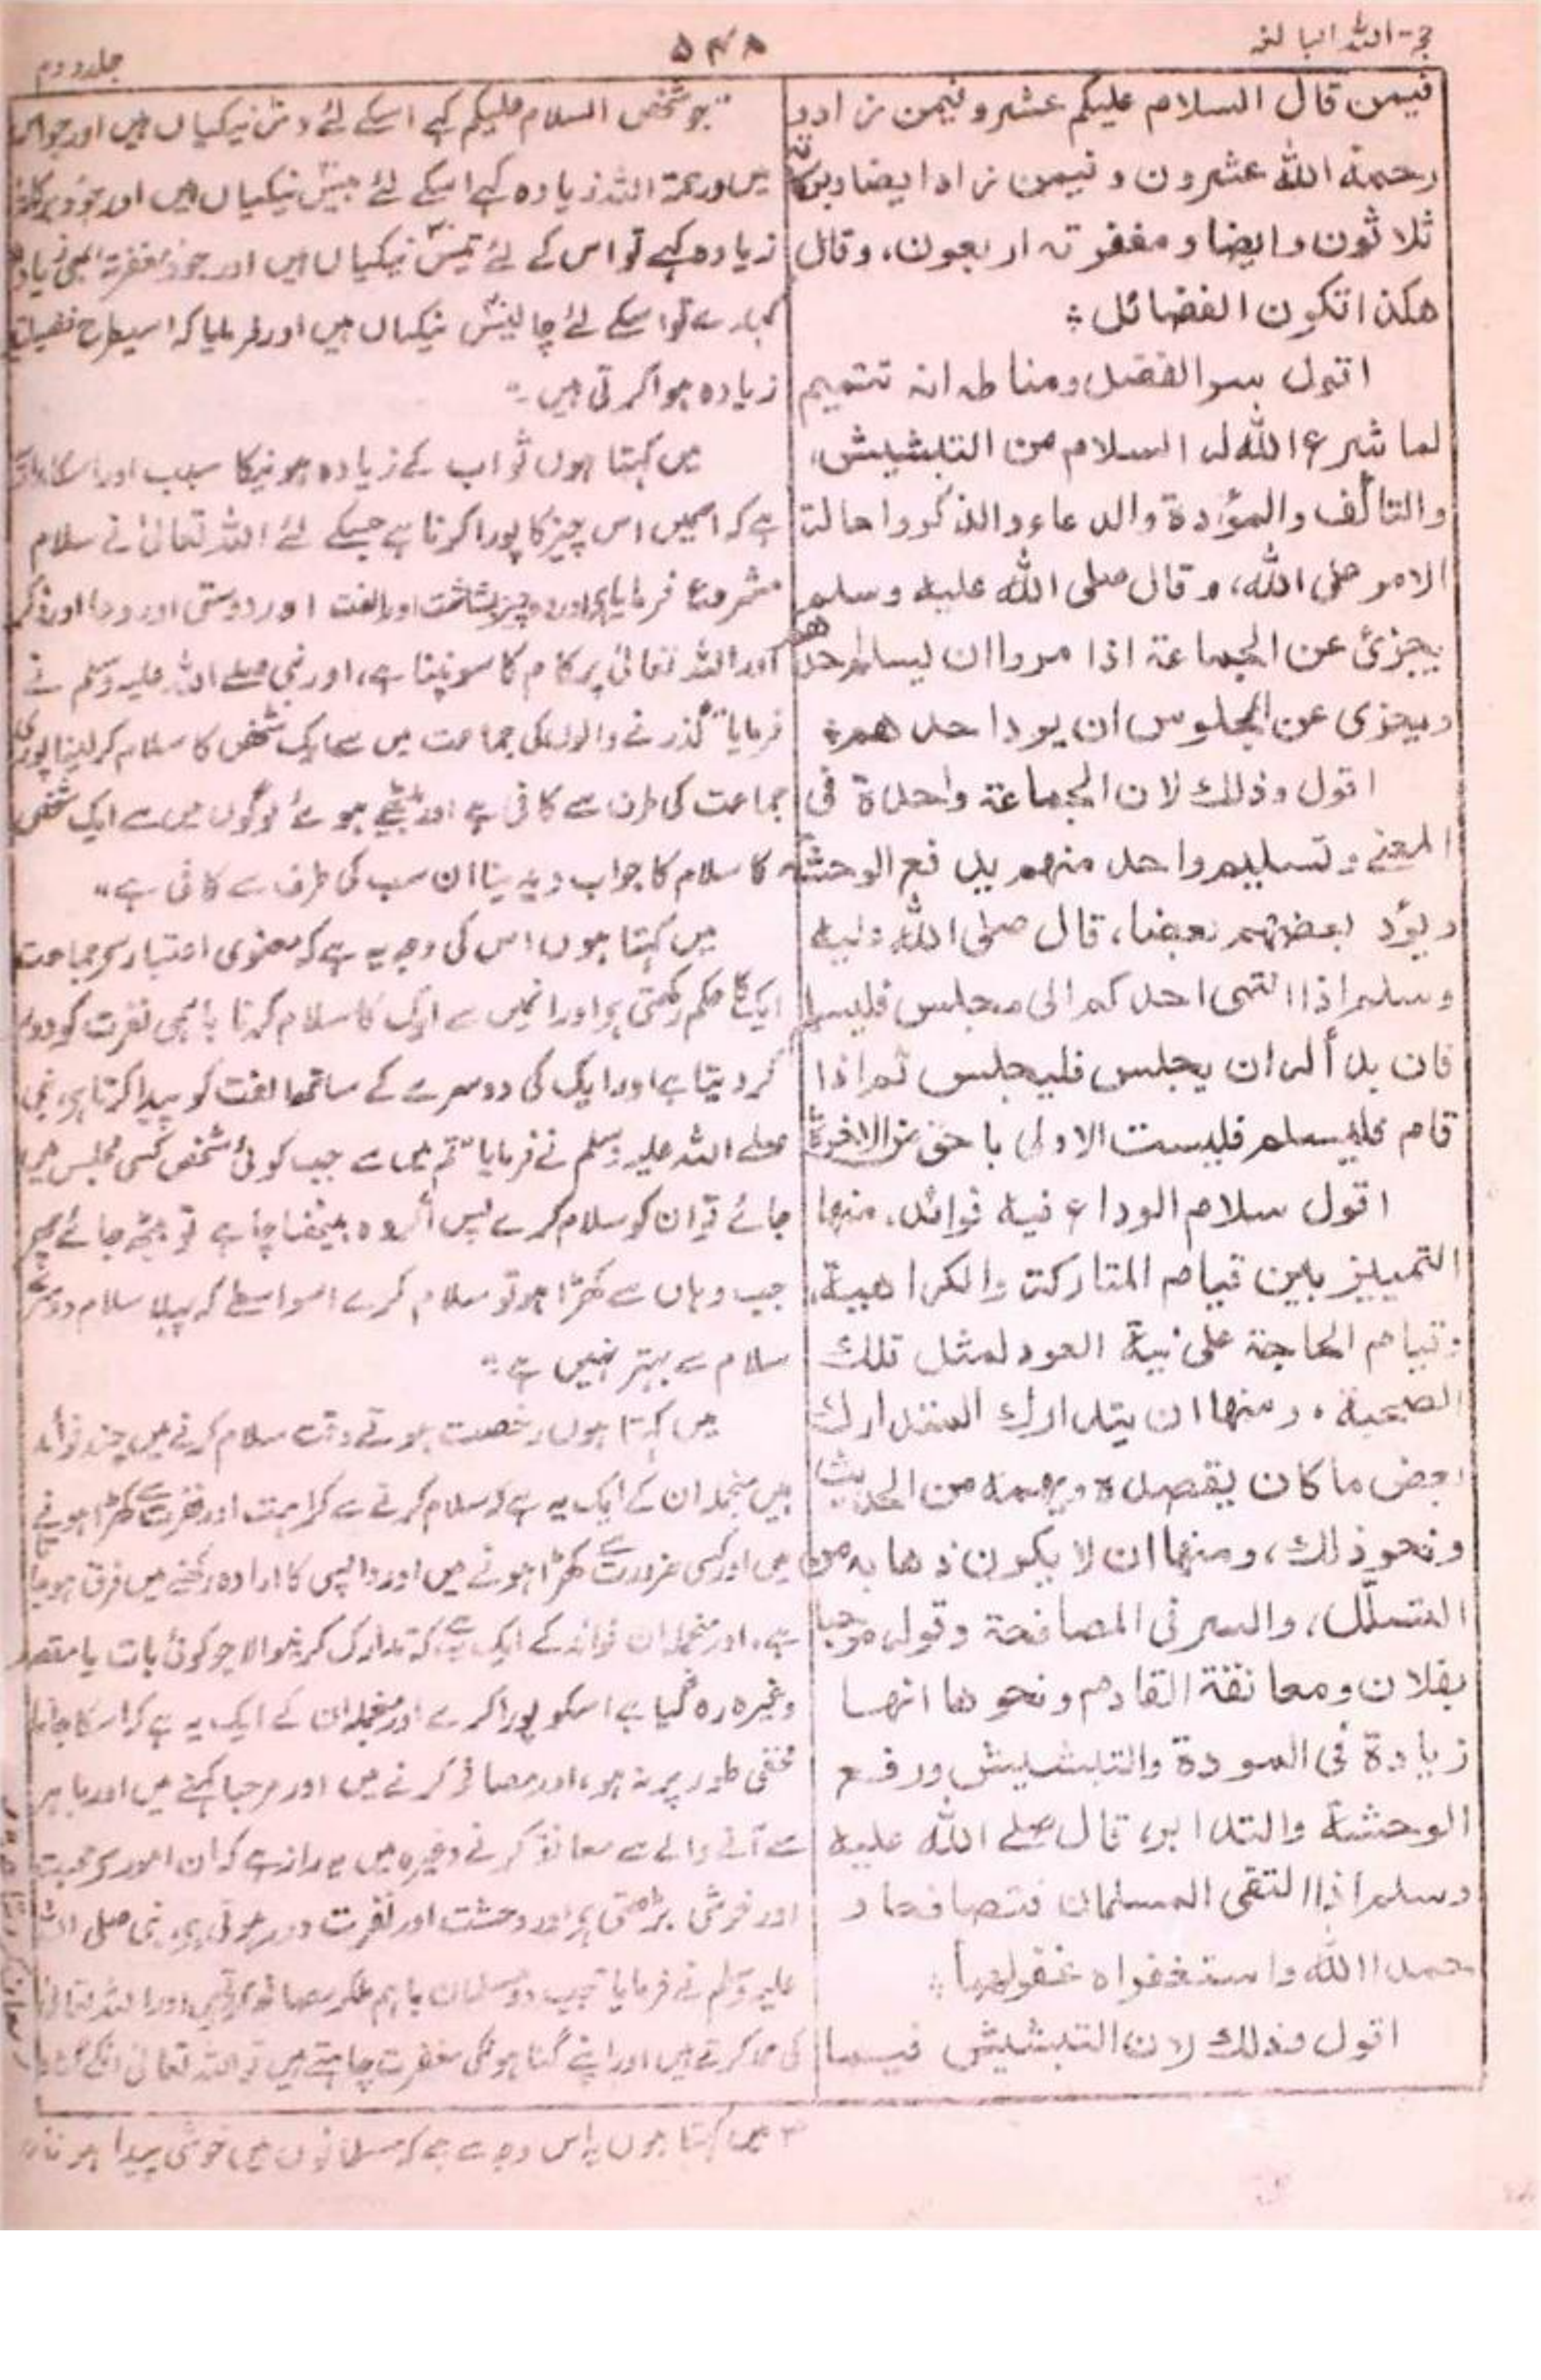 حجۃ اللہ البالغہ
۵۴۸
جلد دوم
فيمن قال السلام عليكم عشر وفيمن زاد و
رحمة الله عشرون وفيمن زاد ايضا وبركاته
ثلاثون وايضا ومغفرته اربعون، وقال
هكذا تكون الفضائل ؛
اقول سر الفضل ومناطه انه تتميم
لما شرع الله له السلام من التبشيش،
والتألف والموٌادة والدعاء والذكر واحالة
الامر على الله، وقال صلى الله عليه وسلم
يجزئ عن الجماعة اذا مروا ان يسلم احدهم
ويجزى عن الجلوس ان يرد احدهم ؛
اقول وذلك لان الجماعة واحدة فى
المعنے وتسليم واحد منهم يدفع الوحشة
ويؤد بعضهم بعضا، قال صلى الله عليه
وسلم اذا انتهى احدكم الى مجلس فليسلم
فان بدأ له ان يجلس فليجلس ثم اذا
قام فليسلم فليست الاولى باحق من الاخرة
اقول سلام الوداع فيه فوائد. منها
التمييز بين قيام المتاركة والكراهية،
وقيام الحاجة على نية العود لمثل تلك
الصحبة. ومنها ان يتدارك المتدارك
بعض ما كان يقصده ويهمه من الحديث
ونحو ذلك، ومنها ان لا يكون ذهابه من
التسلّل، والسر فى المصافحة وقوله مرحبا
بفلان ومعانقة القادم ونحوها انها
زيادة فى المودة والتبشيش ورفع
الوحشة والتدابر، قال صلے الله عليه
وسلم اذا التقى المسلمان فتصافحا و
حمدا الله واستغفراه غفرلهما ؛
اقول وذلك لان التبشيش فيما
جو شخص السلام علیکم کہے اسکے لئے دس نیکیاں ہیں اور جو اس
میں ورحمۃ اللہ زیادہ کہے اسکے لئے بیس نیکیاں ہیں اور جو وبرکاتہ
زیادہ کہے تو اس کے لئے تیس نیکیاں ہیں اور جو ومغفرتہ بھی زیادہ
کہدے تو اسکے لئے چالیس نیکیاں ہیں اور فرمایا کہ اسیطرح فضیلتیں
زیادہ ہوا کرتی ہیں ۔"
میں کہتا ہوں ثواب کے زیادہ ہونیکا سبب اور اسکا مدار
ہے کہ اسمیں اس چیز کا پورا کرنا ہے جسکے لئے اللہ تعالیٰ نے سلام
مشروع فرمایا ہے اور وہ چیز بشاشت اور الفت اور دوستی اور دعا اور ذکر
اور اللہ تعالیٰ پر کام کا سونپنا ہے، اور نبی صلے اللہ علیہ وسلم نے
فرمایا "گذرنے والوں کی جماعت میں سے ایک شخص کا سلام کر لینا پوری
جماعت کی طرف سے کافی ہے اور بیٹھے ہوئے لوگوں میں سے ایک شخص
کا سلام کا جواب دیدینا ان سب کی طرف سے کافی ہے"
میں کہتا ہوں اس کی وجہ یہ ہے کہ معنوی اعتبار سے جماعت
ایک کا حکم رکھتی ہے اور انمیں سے ایک کا سلام کرنا باہمی نفرت کو دور
کر دیتا ہے اور ایک کی دوسرے کے ساتھ الفت کو پیدا کرتا ہے، نبی
صلے اللہ علیہ وسلم نے فرمایا "تم میں سے جب کوئی شخص کسی مجلس میں
جائے تو ان کو سلام کرے پس اگر وہ بیٹھنا چاہے تو بیٹھ جائے پھر
جب وہاں سے کھڑا ہو تو سلام کرے اسواسطے کہ پہلا سلام دوسرے
سلام سے بہتر نہیں ہے"
میں کہتا ہوں رخصت ہوتے وقت سلام کرنے میں چند فوائد
ہیں منجملہ ان کے ایک یہ ہے کہ سلام کرنے سے کراہت اور نفرت سے کھڑا ہونے
میں اور کسی ضرورت سے کھڑا ہونے میں اور واپسی کا ارادہ رکھنے میں فرق ہو جاتا
ہے، اور منجملہ ان فوائد کے ایک یہ ہے کہ تدارک کرنیوالا جو کوئی بات یا مقصد
وغیرہ رہ گیا ہے اسکو پورا کرے اور منجملہ ان کے ایک یہ ہے کہ اس کا جانا
مخفی طور پر نہ ہو، اور مصافحہ کرنے میں اور مرحبا کہنے میں اور باہر
سے آنے والے سے معانقہ کرنے وغیرہ میں یہ راز ہے کہ ان امور سے محبت
اور خوشی بڑھتی ہے اور وحشت اور نفرت دور ہوتی ہے، نبی صلی اللہ
علیہ وسلم نے فرمایا "جب دو مسلمان باہم ملکر مصافحہ کرتے ہیں اور اللہ تعالیٰ
کی حمد کرتے ہیں اور اپنے گناہونکی مغفرت چاہتے ہیں تو اللہ تعالیٰ انکے گناہ
میں کہتا ہوں یہ اس وجہ سے ہے کہ مسلمانوں میں خوشی پیدا ہونا